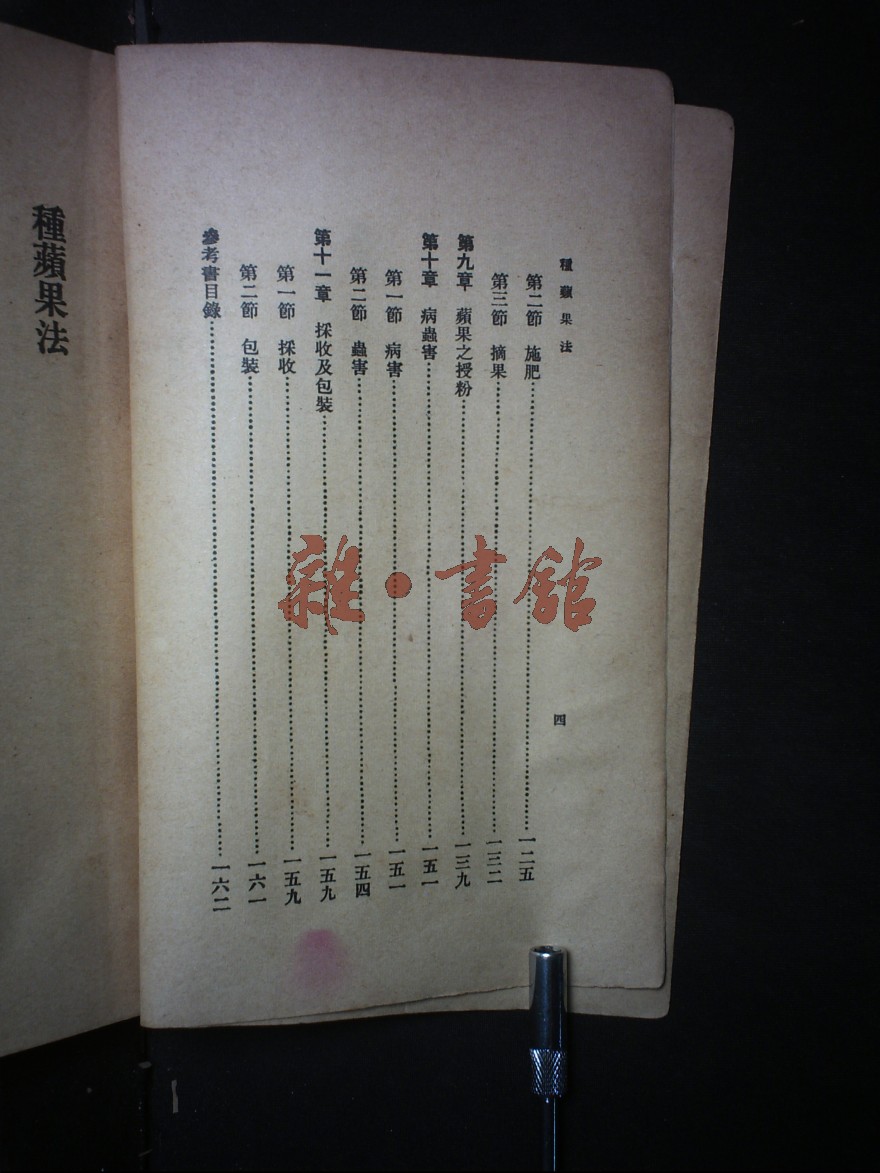 種蘋果法
四
第二節 施肥……一二五
第三節 摘果……一三二
第九章 蘋果之授粉……一三九
第十章 病蟲害……一五一
第一節 病害……一五一
第二節 蟲害……一五四
第十一章 採收及包裝……一五九
第一節 採收……一五九
第二節 包裝……一六一
參考書目錄……一六二
種蘋果法
雜·書館